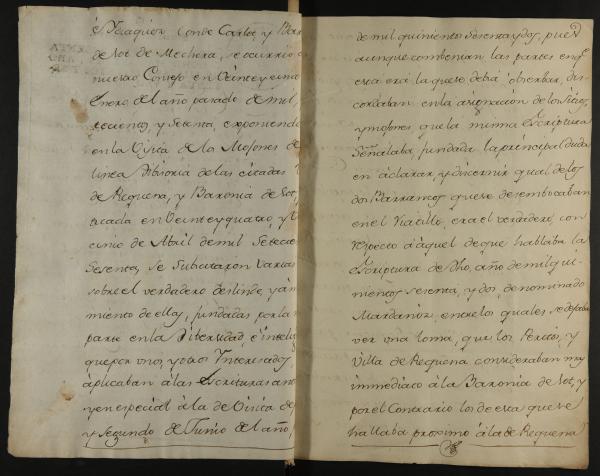 é Joaquin, Conde Carlos, y Bar
de Sot de Mechera, se ocurrió a
nuestro Consejo en Veinte y cinco
Enero del año pasado de mil,
tecientos, y Setenta, exponiendo
en la Visita de los Mojones de
Linea divisoria de las citadas
de Requena, y Baronia de Sot,
ticada en Veinte y quatro, y V
cinco de Abril de mil Setecie
Sesenta, se Subcitaron Varias
sobre el verdadero deslinde, y am
miento de ellas, fundadas por la
parte en la Diversidad, é inteli
que por unos, y otros Interesados
aplicaban á las Escrituras an
y en especial á la de Visita de
y Segundo de Junio del año,
de mil quinientos Sesenta y dos, pues
aunque combenian las partes en q.e
esta era la que se debia observar, dis
cordaban en la asignacion de los Sitios,
y mojones, que la misma Escriptura
Señalaba, fundada la principal duda
en aclarar, y discernir qual de los
dos Barrancos que se desembocaban
en el Riatillo, era el verdadero, con
respecto á aquel de que hablaba la
Escriptura de dho. año de mil qui-
nientos sesenta, y dos, denominado
entre los quales se dejaba
ver una loma, que los Peritos, y
Villa de Requena consideraban muy
immediato á la Baronia de Sot, y
por el Contrario los de esta que se
hallaba proximo á la de Requena